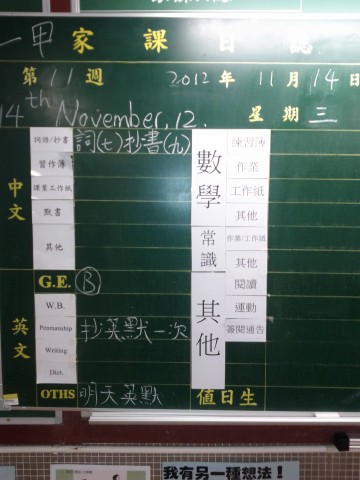 一甲家課日誌
第11週 2012年11月14日
14th November, 12. 星期三
中文
詞語/抄書 詞(七)抄書(九)
習作簿
課業工作紙
默書
其他
G.E. B
英文
W.B.
Penmanship 抄英默一次
Writing
Dict.
OTHS 明天英默
數學
練習簿
作業
工作紙
其他
常識
作業/工作紙
其他
其他
閱讀
運動
簽閱通告
值日生
我有另一種想法!